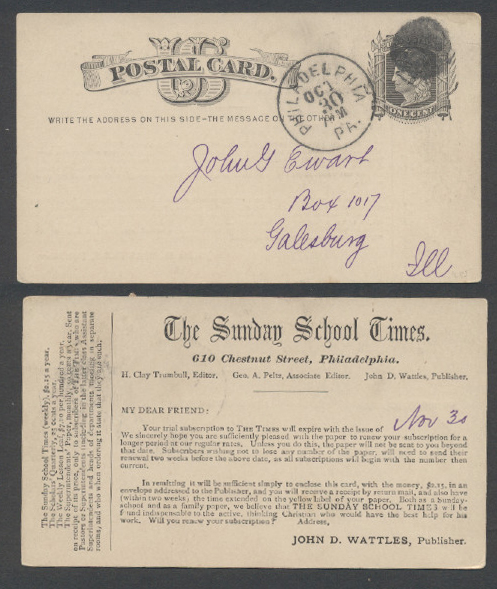 US
POSTAL CARD.
WRITE THE ADDRESS ON THIS SIDE—THE MESSAGE ON THE OTHER
PHILADELPHIA
OCT
30
PM
PA.
ONE CENT
John G Ewart
Box 1017
Galesburg
Ill
The Sunday School Times.
610 Chestnut Street, Philadelphia.
H. Clay Trumbull, Editor. Geo. A. Peltz, Associate Editor. John D. Wattles, Publisher.
MY DEAR FRIEND:
Your trial subscription to THE TIMES will expire with the issue of Nov 30
We sincerely hope you are sufficiently pleased with the paper to renew your subscription for a
longer period at our regular rates. Unless you do this, the paper will not be sent to you beyond
that date. Subscribers wishing not to lose any number of the paper, will need to send their
renewal two weeks before the above date, as all subscriptions will begin with the number then
current.
In remitting it will be sufficient simply to enclose this card, with the money, $2.15, in an
envelope addressed to the Publisher, and you will receive a receipt by return mail, and also have
(within two weeks), the time extended on the yellow label of your paper. Both as a Sunday-
school and as a family paper, we believe that THE SUNDAY SCHOOL TIMES will be
found indispensable to the active, thinking Christian who would have the best help for his
work. Will you renew your subscription? Address,
JOHN D. WATTLES, Publisher.
The Sunday School Times (weekly), $2.15 a year.
The Scholars' Quarterly, 25 cents a year.
The Weekly Lesson Leaf, $7.20 per hundred a year.
The Superintendents' Paper, monthly, 50 cents a year. Sent
on receipt of its price, only to subscribers of THE TIMES who are
Pastors or Superintendents, including in the latter class Assistant
Superintendents and heads of departments meeting in separate
rooms, and who when ordering it state that they are such.